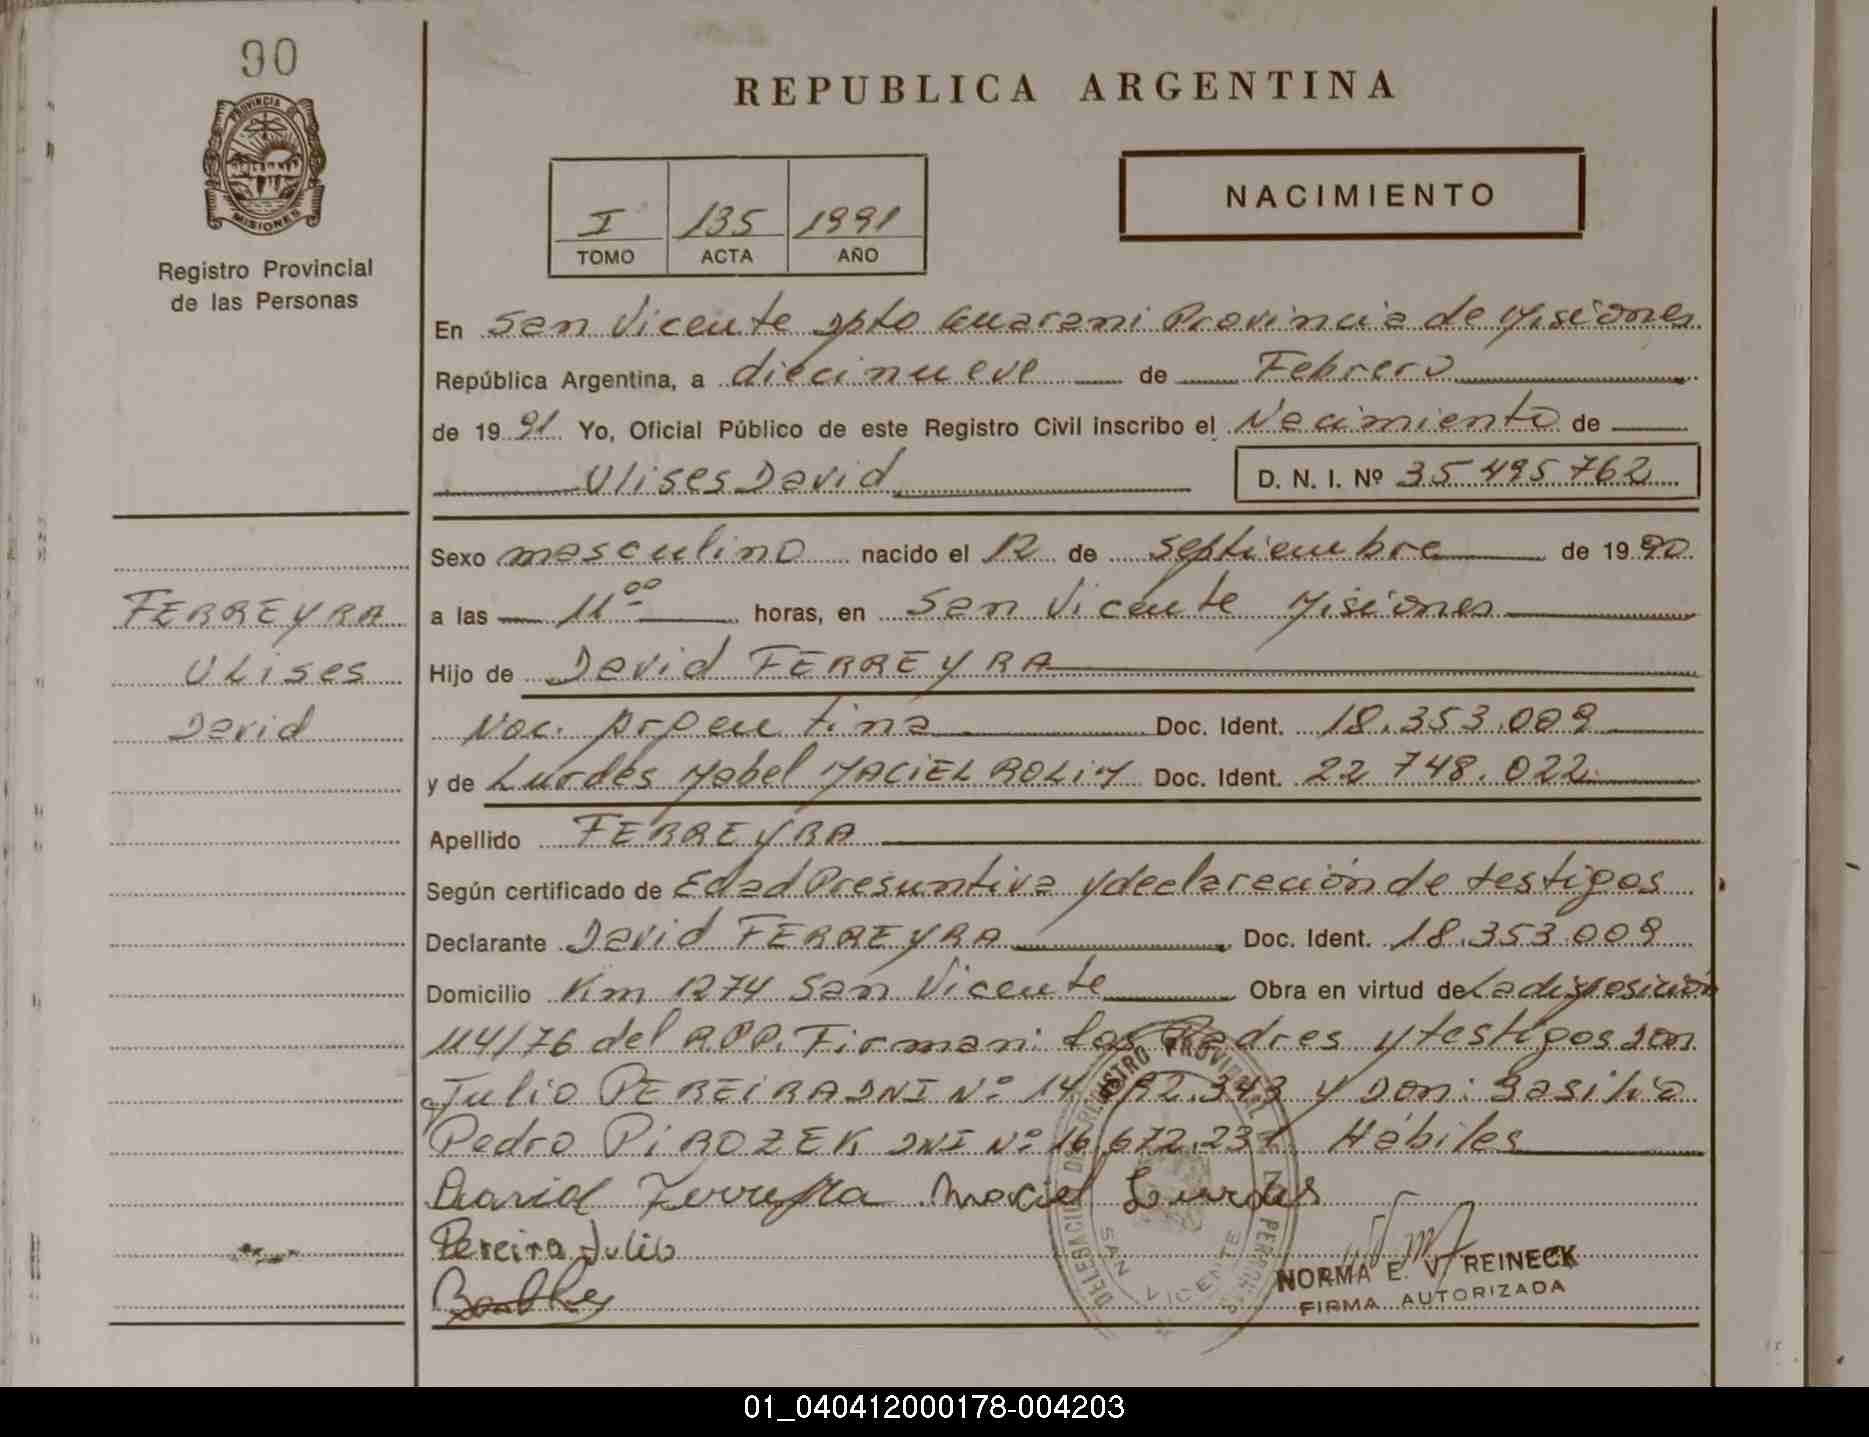 90
PROVINCIA DE
MISIONES
Registro Provincial
de las Personas
REPUBLICA ARGENTINA
I 135 1991
TOMO ACTA AÑO
NACIMIENTO
En San Vicente Dpto Guarani Provincia de Misiones
República Argentina, a diecinueve de Febrero
de 1991 Yo, Oficial Público de este Registro Civil inscribo el Nacimiento de
Ulises David D. N. I. Nº 35 495 762
Sexo masculino nacido el 12 de septiembre de 1990
a las 11 00 horas, en San Vicente Misiones
Hijo de David FERREYRA
Nac. Argentina Doc. Ident. 18.353.009
y de Lurdes Mabel MACIEL ROLIM Doc. Ident. 22 748.022
Apellido FERREYRA
Según certificado de Edad Presuntiva y declaración de testigos
Declarante David FERREYRA Doc. Ident. 18.353.009
Domicilio Km 1274 San Vicente Obra en virtud de La disposición
114/76 del R.P.P. Firman: los Padres y testigos Don
Julio PEREIRA DNI Nº 14. 343 y Don: Basilio
Pedro PIROZEK DNI Nº 16.672.231 Hábiles
David Ferreyra Maciel Lurdes
Pereira Julio
NORMA E. V. REINECK
FIRMA AUTORIZADA
DELEGACION DEL REGISTRO PROVINCIAL DE LAS PERSONAS
SAN VICENTE
FERREYRA
Ulises
David
01_040412000178-004203